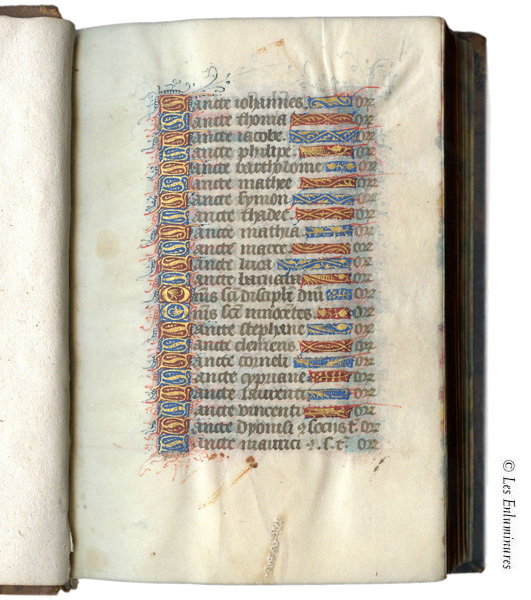 Sancte iohannes. Or
Sancte thoma Or
Sancte iacobe. Or
Sancte philipe. Or
Sancte bartholome Or
Sancte mathee Or
Sancte symon. Or
Sancte thadee. Or
Sancte mathia Or
Sancte marce Or
Sancte luca Or
Sancte barnaba Or
Omis sci discipli dni Or
Oms sci innocetes Or
Sancte stephane Or
Sancte clemens Or
Sancte corneli Or
Sancte cypriane Or
Sancte laurenti Or
Sancte vincenti Or
Sancte dyonisi ⁊ sociis t Or
Sancte maurici ⁊. s. t. Or
© Les Enluminures